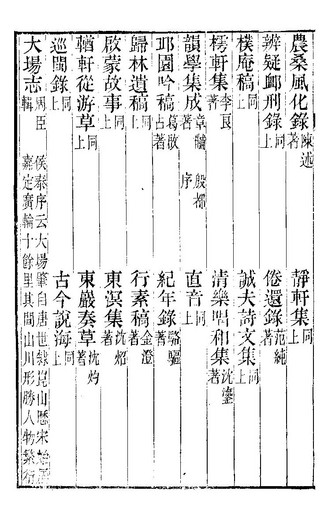 農桑風化錄 陳述著 靜軒集 同上
辨疑卹刑錄 同上 倦還錄 范純著
樸庵稿 同上 誠夫詩文集 同上
樗軒集 李良著 清樂唱和集 沈鏊著
韻學集成 章黼 殷 序 直音 同上
邛園吟稿 葛 著 紀年錄 駱驅著
歸林遺稿 同上 行素稿 金澄著
啟蒙故事 同上 東溟集 沈炤著
輶軒從游草 同上 東嚴奏草 沈灼著
巡閩錄 同上 古今說海 同上
大場志 輯 侯泰序云大場肇自唐世隸崑山懸宋
嘉定廣輪十餘里其間山川形勝人物繁衍